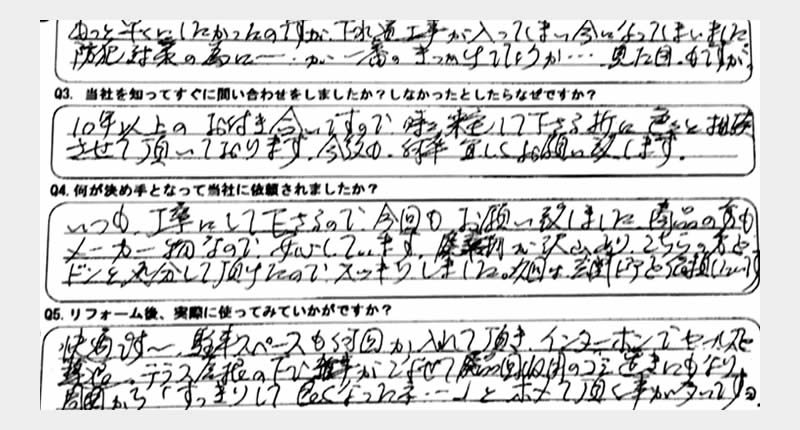 もっと早くにしたかったのですが、下水道工事が入ってしまい今になってしまいました
防犯対策の為に一、が一番のきっかけでしょうか… 見た目もですが、
Q3. 当社を知ってすぐに問い合わせをしましたか?しなかったとしたらなぜですか?
10年以上のお付き合いですので、時々来宅して下さる折に色々と相談
させて頂いております。今後も、何卒宜しくお願い致します。
Q4. 何が決め手となって当社に依頼されましたか?
いつも、丁寧にして下さるので、今回もお願い致しました。商品の方も
メーカー物なので、安心しています。廃棄物が沢山あり、こちらの方も
ドンと処分して頂けたのでスッキリしました。次回は、玄関ドアを依頼したいです
Q5. リフォーム後、実際に使ってみていかがですか?
快適です〜、駐車スペースも何回か入れて頂き、インターホンでセールスを
テラス屋根の下で が出せて 回収用のゴミ置きにもなり、
周囲から「すっきりして良くなったネ…」とホメて頂く事が多いです。